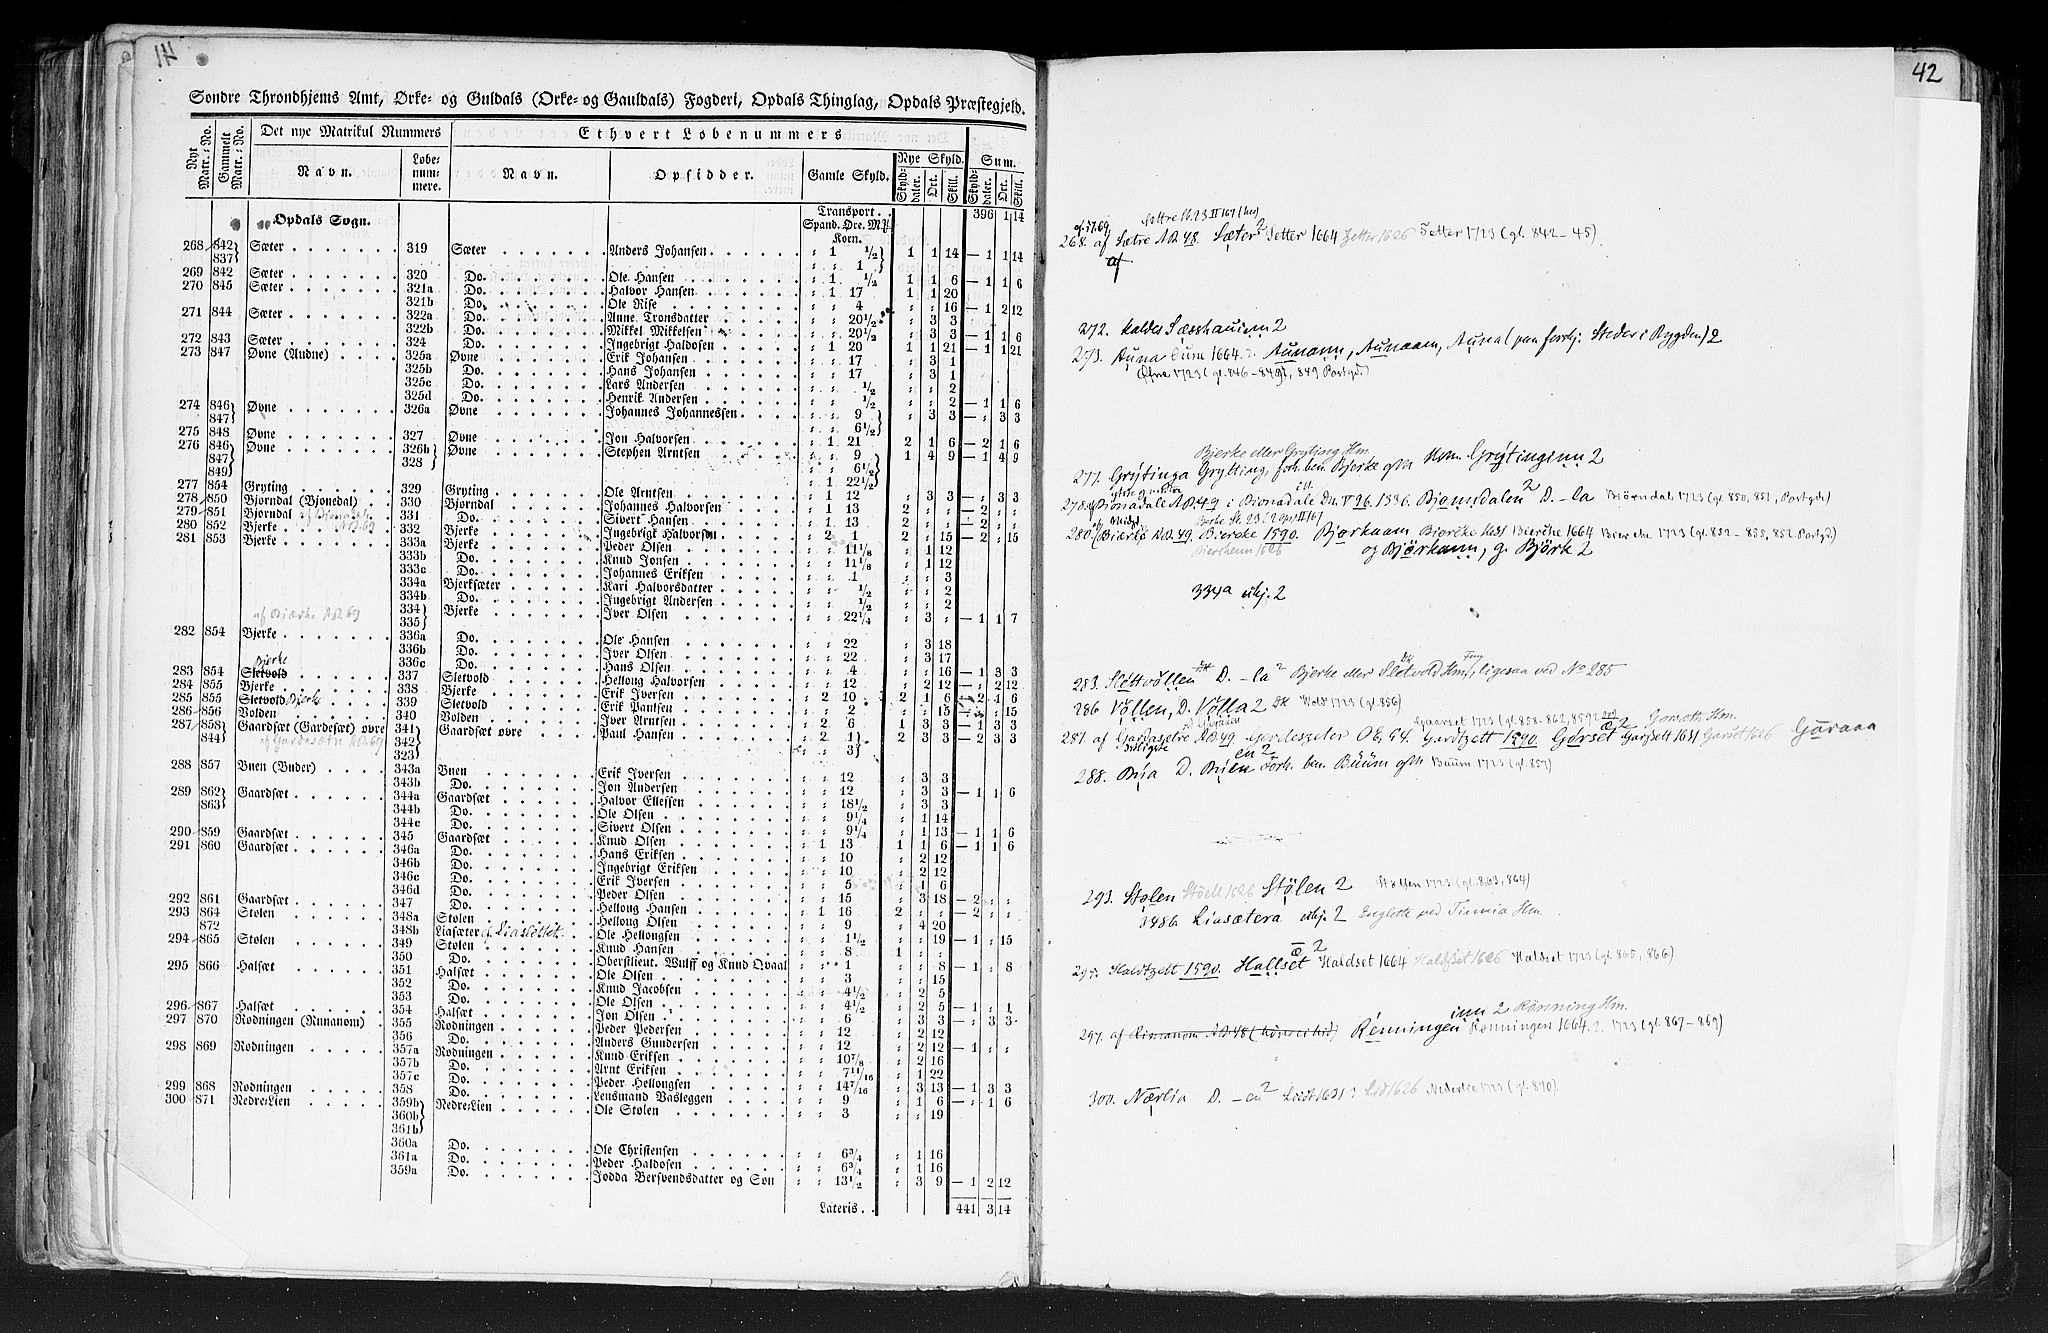 41
Søndre Throndhjems Amt, Ørke- og Guldals (Orke- og Gauldals) Fogderi, Opdals Thinglag, Opdals Præstegjeld.
Nyt Matr.-No. Gammelt Matr.-No. Det nye Matrikul Nummers Ethvert Løbenummers
Navn. Løbenummere. Navn. Opsidder. Gamle Skyld. Nye Skyld. Sum.
Skylddaler. Ort. Skill. Skylddaler. Ort. Skill.
Transport . . 396 1 14
Opdals Sogn. Spand. Øre. Mkl. Korn.
268 842 837 Sæter 319 Sæter Anders Johansen " 1 1/2 " " 1 1 1 14 — 1 1 14
269 842 Sæter 320 Do. Ole Hansen " 1 1/2 1 1 6 — 1 1 6
270 845 Sæter 321a Do. Halvor Hansen " 1 17 1 1 20
321b Do. Ole Rise " " 4 " " 16 — 1 2 12
271 844 Sæter 322a Do. Anne Tronsdatter " " 20 1/2 " 3 3
322b Do. Mikkel Mikkelsen " " 20 1/2 " 3 3 — 1 1 6
272 843 Sæter 324 Do. Ingebrigt Haldosen " 1 20 1 1 21 — 1 1 21
273 847 Øvne (Audne) 325a Øvne Erik Johansen " " 17 " 3 1
325b Do. Hans Johansen " " 17 " 3 1
325c Do. Lars Andersen " " 1/2 " " 2
325d Do. Henrik Andersen " " 1/2 " " 2 — 1 1 6
274 846 847 Øvne 326a Øvne Johannes Johannessen " " 9 " " 6 1/2 " 3 3 — " 3 3
275 848 Øvne 327 Øvne Jon Halvorsen " 1 21 2 1 6 — 2 1 6
276 846 847 849 Øvne 326b 328 Øvne Stephen Arntsen " " 9 " " 6 1/2 " 1 22 1/2 1 4 9 — 1 4 9
277 854 Gryting 329 Gryting Ole Arntsen " 1 12 " 3 3 — " 3 3
278 850 Bjørndal (Bjonedal) 330 Bjørndal Johannes Halvorsen " 1 13 2 " " — 2 " "
279 851 Bjørndal 331 Do. Sivert Hansen " 1 13 2 " " — 2 " "
280 852 Bjerke 332 Bjerke Ingebrigt Halvorsen " 2 1 2 " 15 — 2 " 15
281 853 Bjerke 333a Bjerke Peder Olsen " " 11 1/8 " 1 12
333b Do. Knud Jonsen " " 11 1/8 " 1 12
333c Do. Johannes Eriksen " " 1 " " 3
334a Bjerksæter Kari Halvorsdatter " " 1/2 " " 2
334b Do. Ingebrigt Andersen " " 1/2 " " 2
af Biærke AB 69 334 335 Bjerke Iver Olsen " " 22 1/4 " 3 " — 1 1 7
282 854 Bjerke 336a Do. Ole Hansen " " 22 " 3 18
336b Do. Iver Olsen " " 22 " 3 17
Bjerke 336c Do. Hans Olsen " " 4 " " 16 — 1 3 3
283 854 Sletvold 337 Sletvold Hellong Halvorsen " " 12 " 2 12 — " 2 12
284 855 Bjerke 338 Bjerke Erik Iversen " 2 10 2 1 6 — 2 1 6
285 855 Sletvold Bjerke 339 Sletvold Erik Pauſsen " " 2 " " 15 — " " 15
286 856 Volden 340 Volden Iver Arntsen " 2 6 1 3 3 — 1 3 3
287 858 844 Gaardsæt (Gardesæt) øvre 341 342 323 Gaardsæt øvre Paul Hansen " 2 1 " " 3 2 3 3 — 2 3 3
af Gardasætre AB 69
288 857 Buen (Buder) 343a Buen Erik Iversen " " 12 " 3 3
343b Do. Jon Andersen " " 12 " 3 3 — 1 1 6
289 862 863 Gaardsæt 344a Gaardsæt Halvor Ellefsen " " 18 1/2 " 3 3
344b Do. Ole Olsen " " 9 1/4 " 1 14
344c Do. Sivert Olsen " " 9 1/4 " 1 13 — 1 1 6
290 859 Gaardsæt 345 Gaardsæt Knud Olsen " 1 13 1 1 6 — 1 1 6
291 860 Gaardsæt 346a Do. Hans Eriksen " " 10 " 2 12
346b Do. Ingebrigt Eriksen " " 10 " 2 12
346c Do. Erik Iversen " " 5 " 1 6
346d Do. Peder Olsen " " 15 " 3 18 — 2 " "
292 861 Gaardsæt 347 Do. Hellong Hansen " 1 16 2 " " — 2 " "
293 864 872 Stølen 348a Stølen Hellong Olsen " " 9 " 4 20
348b Liasæter Ole Hellongsen " " 1 1/2 " " 19 — 1 " 15
294 865 Stølen 349 Stølen Knud Hansen " " 8 1 " "
350 Do. Oberstlieut. Wulff og Knud Qvaal " " 1 " " 8 — 1 " 8
295 866 Halsæt 351 Halsæt Ole Olsen " " 3 " " 15
352 Do. Knud Jacobsen " " 4 1/2 " 2 5
353 Do. Ole Olsen " " 4 1/2 " 2 5 — 1 " 1
296 867 Halsæt 354 Halsæt Jon Olsen " " 6 " 3 3 — " 3 3
297 870 Rødningen (Runanom) 355 Rødningen Peder Pedersen " " 12 " 2 12
356 Do. Anders Gundersen " " 12 " 2 12 — 1 " "
298 869 Rødningen 357a Rødningen Knud Eriksen " " 10 7/8 " 2 16
357b Do. Arnt Eriksen " " 7 11/16 " 1 22
357c Do. Peder Hellongsen " " 14 7/16 " 3 13 — 1 3 3
299 868 Rødningen 358 Do. Lensmand Vasleggen " " 9 " 1 6 — " 1 6
300 871 Nedre-Lien 359b 360b 361b Nedre-Lien Ole Stølen " " 3 " " 19
360a Do. Ole Christensen " " 6 3/4 " 1 16
361a Do. Peder Haldosen " " 6 3/4 " 1 16
359a Do. Jodda Bersvendsdatter og Søn " " 13 1/2 " 3 9 — 1 2 12
Lateris . . 441 3 14
42
268. af Sætre AB 48. Sæter² Setter 1664 Zetter 1626 Setter 1723 (gl. 842-45).
af
272. kaldes
273. Auna 1664. Aunann, Aunaam, Auna (paa forskj. Steder i Bygden) 2
Øfne 1723 (gl. 846-849, 849 Partgd.)
Bjerke eller Gryting Hm.
277. Grÿtinga Grytting, forh. ben. Bjerke ofte Grÿtinginn 2
278. Bionadale AB 49 i Bionadale Dn. V 96. 1336. Bjonndalen² D. -la Biørndal 1723 (gl. 850, 851, Partgd.)
280. (Biærke AB 49 Biercke 1590. Bjørkaam Biercke 1631 Bierche 1664 Bierche 1723 (gl. 852-855, 852 Partgd)
og Bjørkann, g. Bjørk 2
334a ubj. 2
283. Slettvöllen D. -la² Bjerke eller Sletvold Hm, ligesaa ved No 285
286 Völlen, D. Völla 2 Wold 1723 (gl. 856)
Gaarset 1723 (gl. 858-862, 859
287. af Gardasetre AB 49 Gardesæter OE. 64. Gardtzett 1590. Gorset Garssett 1631 Garset 1626
288. Bua D. Buen Forh. ben. Buum ofte Buum 1723 (gl. 857)
293. Stølen Stöell 1626 Stölen 2 Stølsen 1723 (gl. 863, 864)
348b. Liasætera ubj. 2 Englette ved Hm.
295. Haldtzett 1590. Hallset Haldset 1664 Haldset 1626 Haldset 1723 (gl. 865, 866)
inn 2 Rönning Hm.
297. af Rimanom AB 48 Rönningen Rønningen 1664. 2. 1723 (gl. 867-869)
300. Nærlia D. -en² Liedt 1631 Lid 1626 Nederlie 1723 (gl. 870)